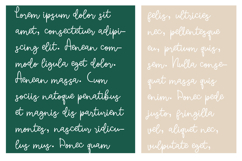 Lorem ipsum dolor sit
amet, consectetuer adipi-
scing elit. Aenean com-
modo ligula eget dolor.
Aenean massa. Cum
sociis natoque penatibus
et magnis dis parturient
montes, nascetur ridicu-
lus mus. Donec quam
felis, ultricies
nec, pellentesque
eu, pretium quis,
sem. Nulla conse-
quat massa quis
enim. Donec pede
justo, fringilla
vel, aliquet nec,
vulputate eget,